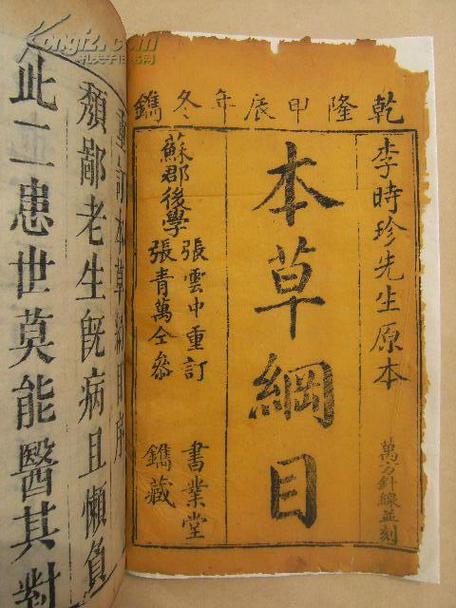 乾隆甲辰年冬鐫
李時珍先生原本
萬方針線並刻
本草綱目
蘇郡後學
張雲中重訂
張青萬仝參
書業堂
鐫藏
重訂本草綱目序
頹鄙老生旣病且懶負
此二患世莫能醫其對
kongfz.com
孔夫子旧书网